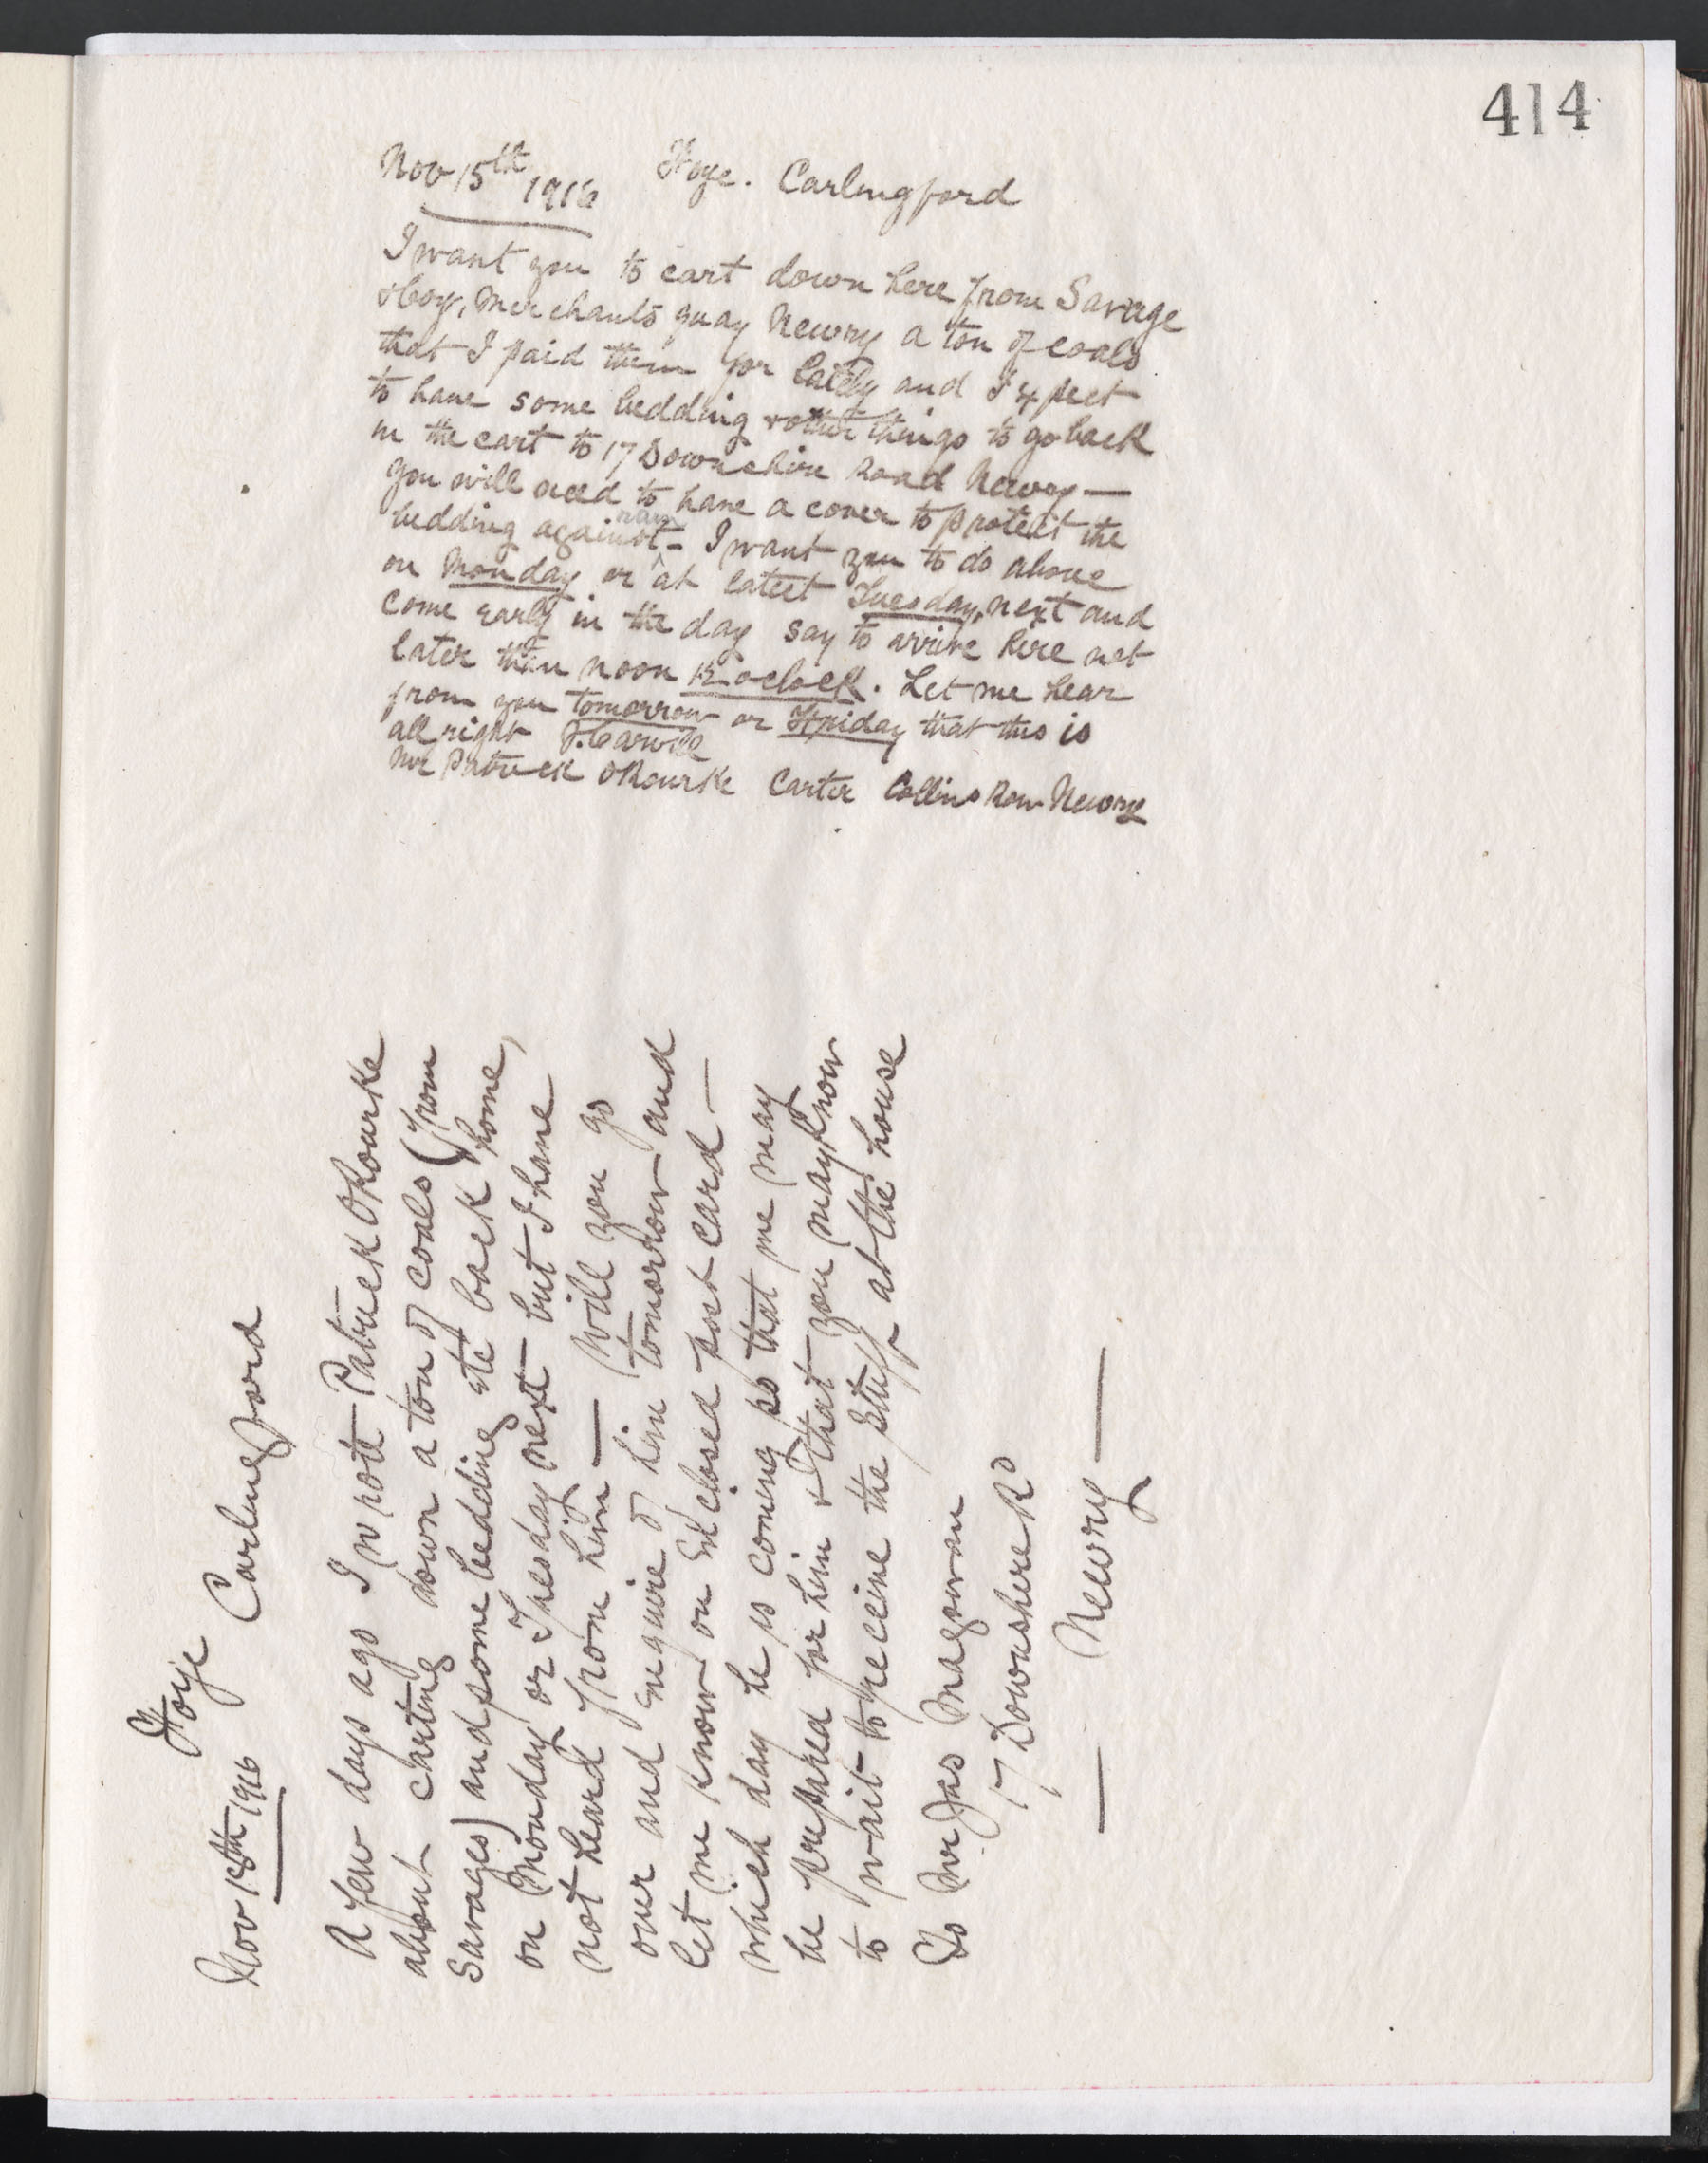 414
Nov 15th 1916 Ffoye. Carlingford
I want you to cart down here from Savage
& Coy, Merchants quay Newry a ton of coals
that I paid them for lately and I expect
to have some bedding & other things to go back
in the cart to 17 Downshire Road Newry —
you will need to have a cover to protect the
bedding against rain - I want you to do above
on Monday or at latest Tuesday next and
come early in the day say to arrive here not
later than noon 12 oclock. Let me hear
from you tomorrow or Ffriday that this is
all right F. Carvill
Mr Patrick ORourke Carter Collins Row Newry
Nov 18th 1916 Ffoye Carlingford
A few days ago I wrote Patrick ORourke
about carting down a ton of coals (from
Savages) and some bedding etc back home,
on Monday or Tuesday next but I have
not heard from him — Will you go
over and enquire of him tomorrow and
let me know on enclosed post card —
which day he is coming so that me may
be prepared for him & that you may know
to wait to receive the stuff at the house
To Mr Jas Magowan
17 Downshire Rd
— Newry —